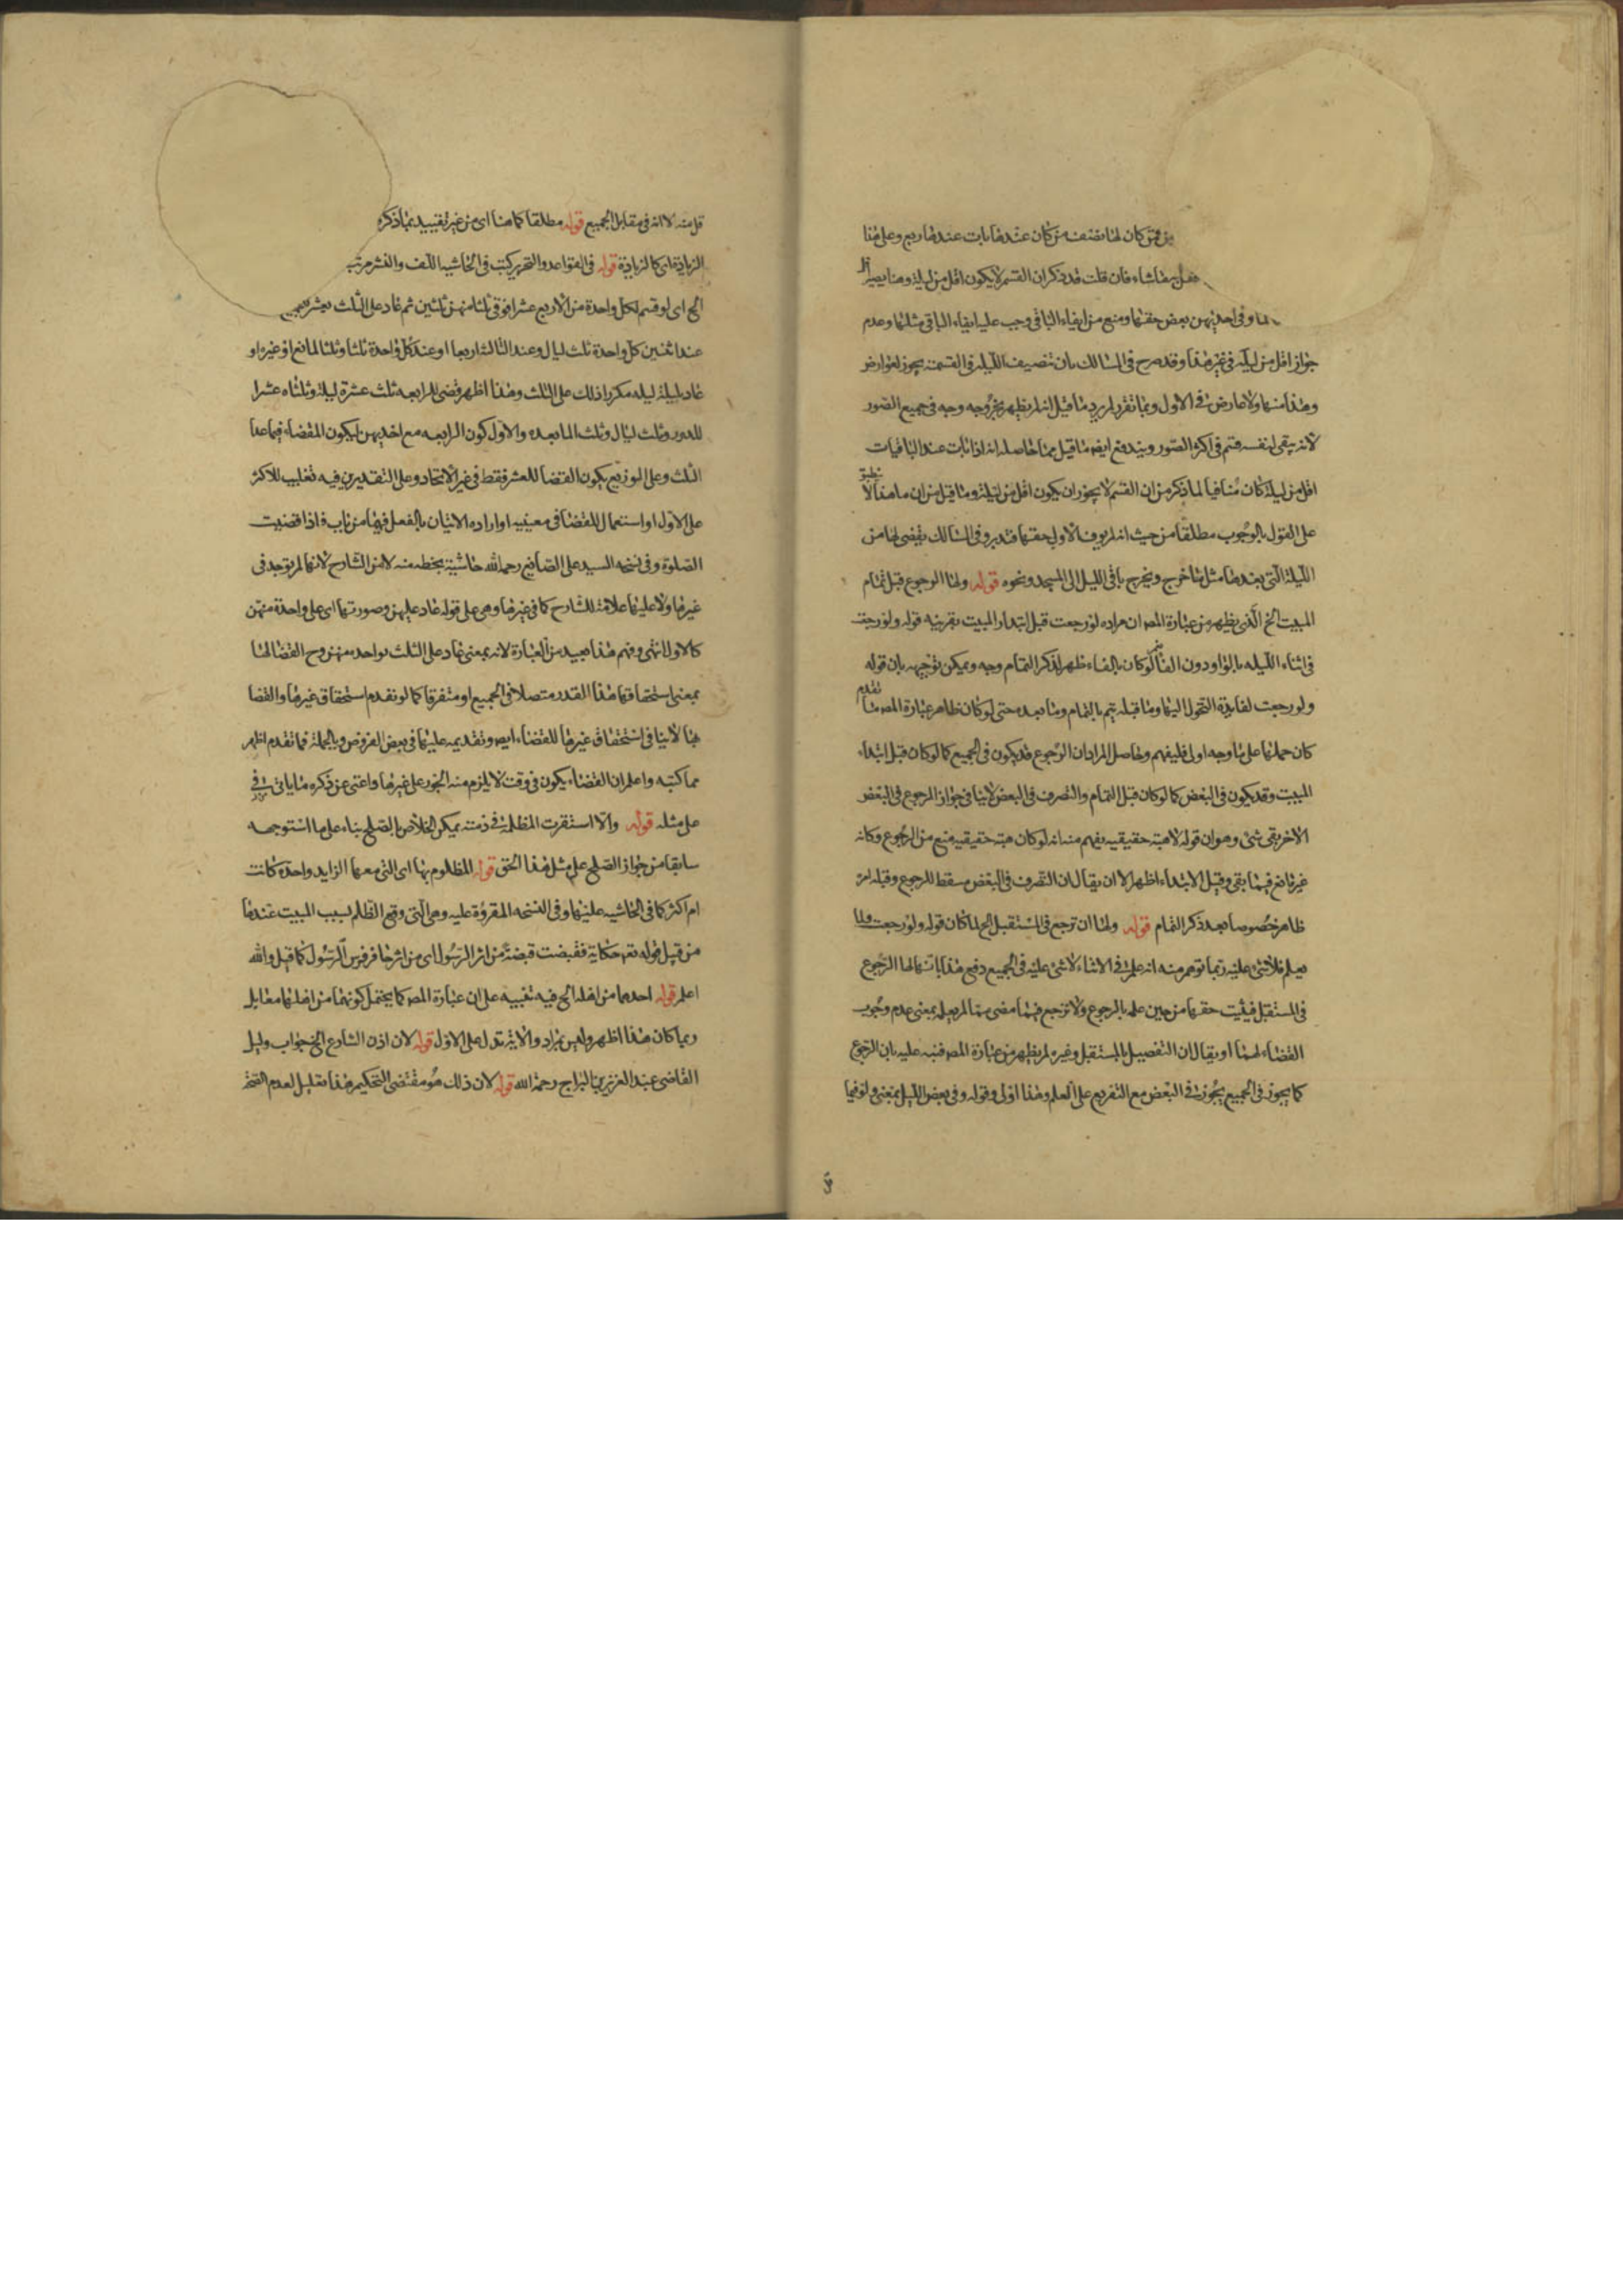 كان لها نصف من كان عندها بات عندها ربع وعلى هذا
شاء فان قلت قد ذكر ان القسم لا يكون اقل من ليلة وهنا يصير
وفى احديهن بعض حقها ومنع من ايفاء الباقى وجب عليه ايفاء الباقى مثلها وعدم
جواز اقل من ليلة فى غير هذا وقد صرح فى المسالك بان تنصيف الليله فى القسمة يجوز لعوارض
وهذا منها ولا عارض فى الاول وبما تقرر لم يرد ما قيل انه لم يظهر بخروجه وجه فى جميع الصور
لانه يبقى لنفسه قسم فى اكثر الصور ويندفع ايضه ما قيل مما حاصله انه اذا بات عند الباقيات
اقل من ليلة كان منافيا لما ذكره من ان القسم لا يجوز ان يكون اقل من ليلة وما قيل من ان ما هنا لا ينطبق
على القول بالوجوب مطلقا من حيث انه لم يوف الاولى حقها فتدبر وفى المسالك يقضى لها من
الليلة التى بعدها مثل ما خرج ويخرج باقى الليل الى المسجد ونحوه قوله ولها الرجوع قبل تمام
المبيت الخ الذى يظهر من عبارة المصه ان مراده لو رجعت قبل ابتداء المبيت بقرينه قوله ولو رجعت
فى اثناء الليله بالواو دون الفا نعم لو كان بالفاء ظهر لذكر التمام وجه ويمكن توجيهه بان قوله
ولو رجعت لفايدة التحول اليها وما قبله يتم بالتمام وما بعده حتى لو كان ظاهر عبارة المصه ما تقدم
كان حملها على ما وجه اولى فليفهم وحاصل المراد ان الرجوع قد يكون فى الجميع كما لو كان قبل ابتداء
المبيت وقد يكون فى البعض كما لو كان قبل التمام والتصرف فى البعض لا ينافى جواز الرجوع فى البعض
الاخر بقى شئ وهو ان قوله لا هبة حقيقيه يفهم منه انه لو كان هبة حقيقيه منع من الرجوع وكانه
غير مانع فيما بقى وقبل الابتداء اظهر الا ان يقال ان التصرف فى البعض مسقط للرجوع وقبله امر
ظاهر خصوصا بعد ذكر التمام قوله ولها ان ترجع فى المستقبل الخ لما كان قوله ولو رجعت ولما
يعلم فلا شئ عليه ربما توهم منه انه علم فى الاثناء لا شئ عليه فى الجميع دفع هذا بان لها الرجوع
فى المستقبل فيثبت حقها من حين علمه بالرجوع ولا ترجع فيما مضى مما لم يعلم بمعنى عدم وجوب
القضاء لهنا او يقال ان التفصيل بالمستقبل وغيره لم يظهر من عبارة المصه فنبه عليه بان الرجوع
كما يجوز فى الجميع يجوز فى البعض مع التفريع على العلم وهذا اولى وقوله وفى بعض الليل بمعنى ولو فيما
منه لا انه فى مقابل الجميع قوله مطلقا كما هنا اى من غير تقييد بما ذكره
الزيادة اى كالزيادة قوله فى القواعد والتحرير كتب فى الحاشيه اللف والنشر مرتب
الخ اى لو قسم لكل واحدة من الاربع عشرا فوفى ثلثا منهن ثلثين ثم عاد على الثلث بعشر
عند اثنين كل واحدة ثلث ليال وعند الثالثه اربعا او عند كل واحدة ثلثا وثلثا لمانع او غيره او
عاد ليلة ليله مكررا ذلك على الثلث وهذا اظهر قضى للرابعه ثلث عشرة ليلة وثلثاه عشرا
للدور وثلث ليال وثلث لما بعده والاول كون الرابعه مع احديهن ليكون القضاء فيما عدا
الثلث وعلى التوزيع يكون القضا للعشر فقط فى غير الاتحاد وعلى التقديرين فيه تغليب للاكثر
على الاول او استعمال للقضا فى معنييه او اراده الاتيان بالفعل فيهما من باب فاذا قضيت
الصلوة وفى نسخه السيد على الصانع رحمه الله حاشية بخطه منه لا من الشارح لانها لم توجد فى
غيرها ولا عليها علامة للشارح كما فى غيرها وهى على قوله عاد عليهن وصورتها اى على واحدة منهن
كالاولى انتهى وفهم هذا بعيد من العبارة لانه بمعنى عاد على الثلث بواحده منهن وح القضا لها
بمعنى استحقاقها هذا القدر متصلا فى الجميع او متفرقا كما لو تقدم استحقاق غيرها والقضا
هنا لا ينافى استحقاق غيرها للقضاء ايضه وتقديمه عليها فى بعض الفروض وبالجملة فما تقدم اظهر
مما كتبه واعلم ان القضاء يكون فى وقت لا يلزم منه الجور على غيرها واغنى عن ذكره ما ياتى فى
على مثله قوله والا استقرت المظلمة فى ذمته يمكن الخلاص بالصلح بناء على ما استوجهه
سابقا من جواز الصلح على مثل هذا الحق قوله المظلوم بها اى التى معها الزايد واحدة كانت
ام اكثر كما فى الحاشيه عليها وفى النسخه المقروة عليه وهى التى وقع الظلم بسبب المبيت عندها
من قبيل قوله تعه حكاية فقبضت قبضة من اثر الرسول اى من اثر حافر فرس الرسول كما قيل والله
اعلم قوله احدهما من اهله الخ فيه تنبيه على ان عبارة المصه كما يحتمل كونهما من اهلهما مقابل
ربما كان هذا اظهر وليس بمراد والاية تدل على الاول قوله لان اذن الشارع الخ جواب دليل
القاضى عبد العزيز بن البراج رحمه الله قوله لان ذلك هو مقتضى التحكيم هذا تعليل لعدم التخير